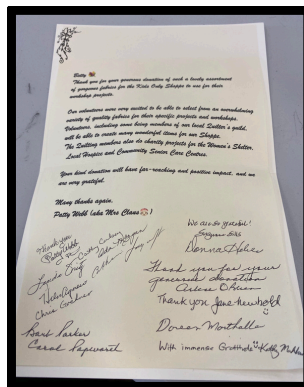 Betty
Thank you for your generous donation of such a lovely assortment
of gorgeous fabrics for the Kids Only Shoppe to use for their
workshop projects.
Our volunteers were very excited to be able to select from an overwhelming
variety of quality fabrics for their specific projects and workshops.
Volunteers, including some being members of our local Quilter's guild,
will be able to create many wonderful items for our Shoppe.
The Quilting members also do charity projects for the Women's Shelter,
Local Hospice and Community Senior Care Centres.
Your kind donation will have far-reaching and positive impact, and we
are very grateful.
Many thanks again,
Patty Webb (aka Mrs Claus !
Thank you
Patty Webb
Chris
We are so grateful!
Donna
Thank you for your
generous donation
Arlene
Thank you Jane Newbold
Barb Parker
Carol Papworth
Doreen
With immense Gratitude Kathy